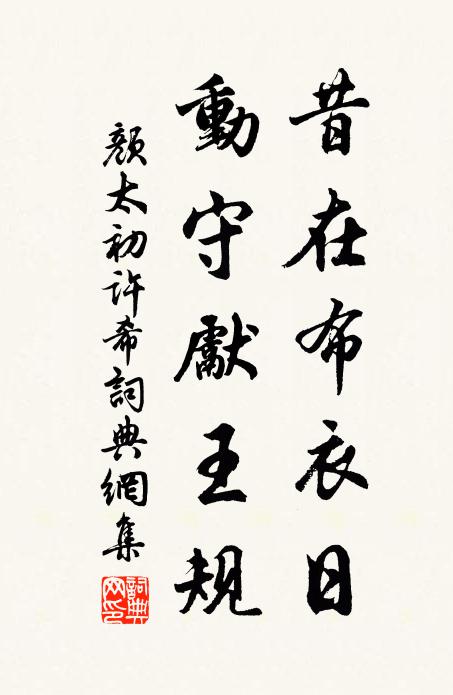 昔在布衣日
動守獻王規
顏太初許希詞典網集
詞典網印